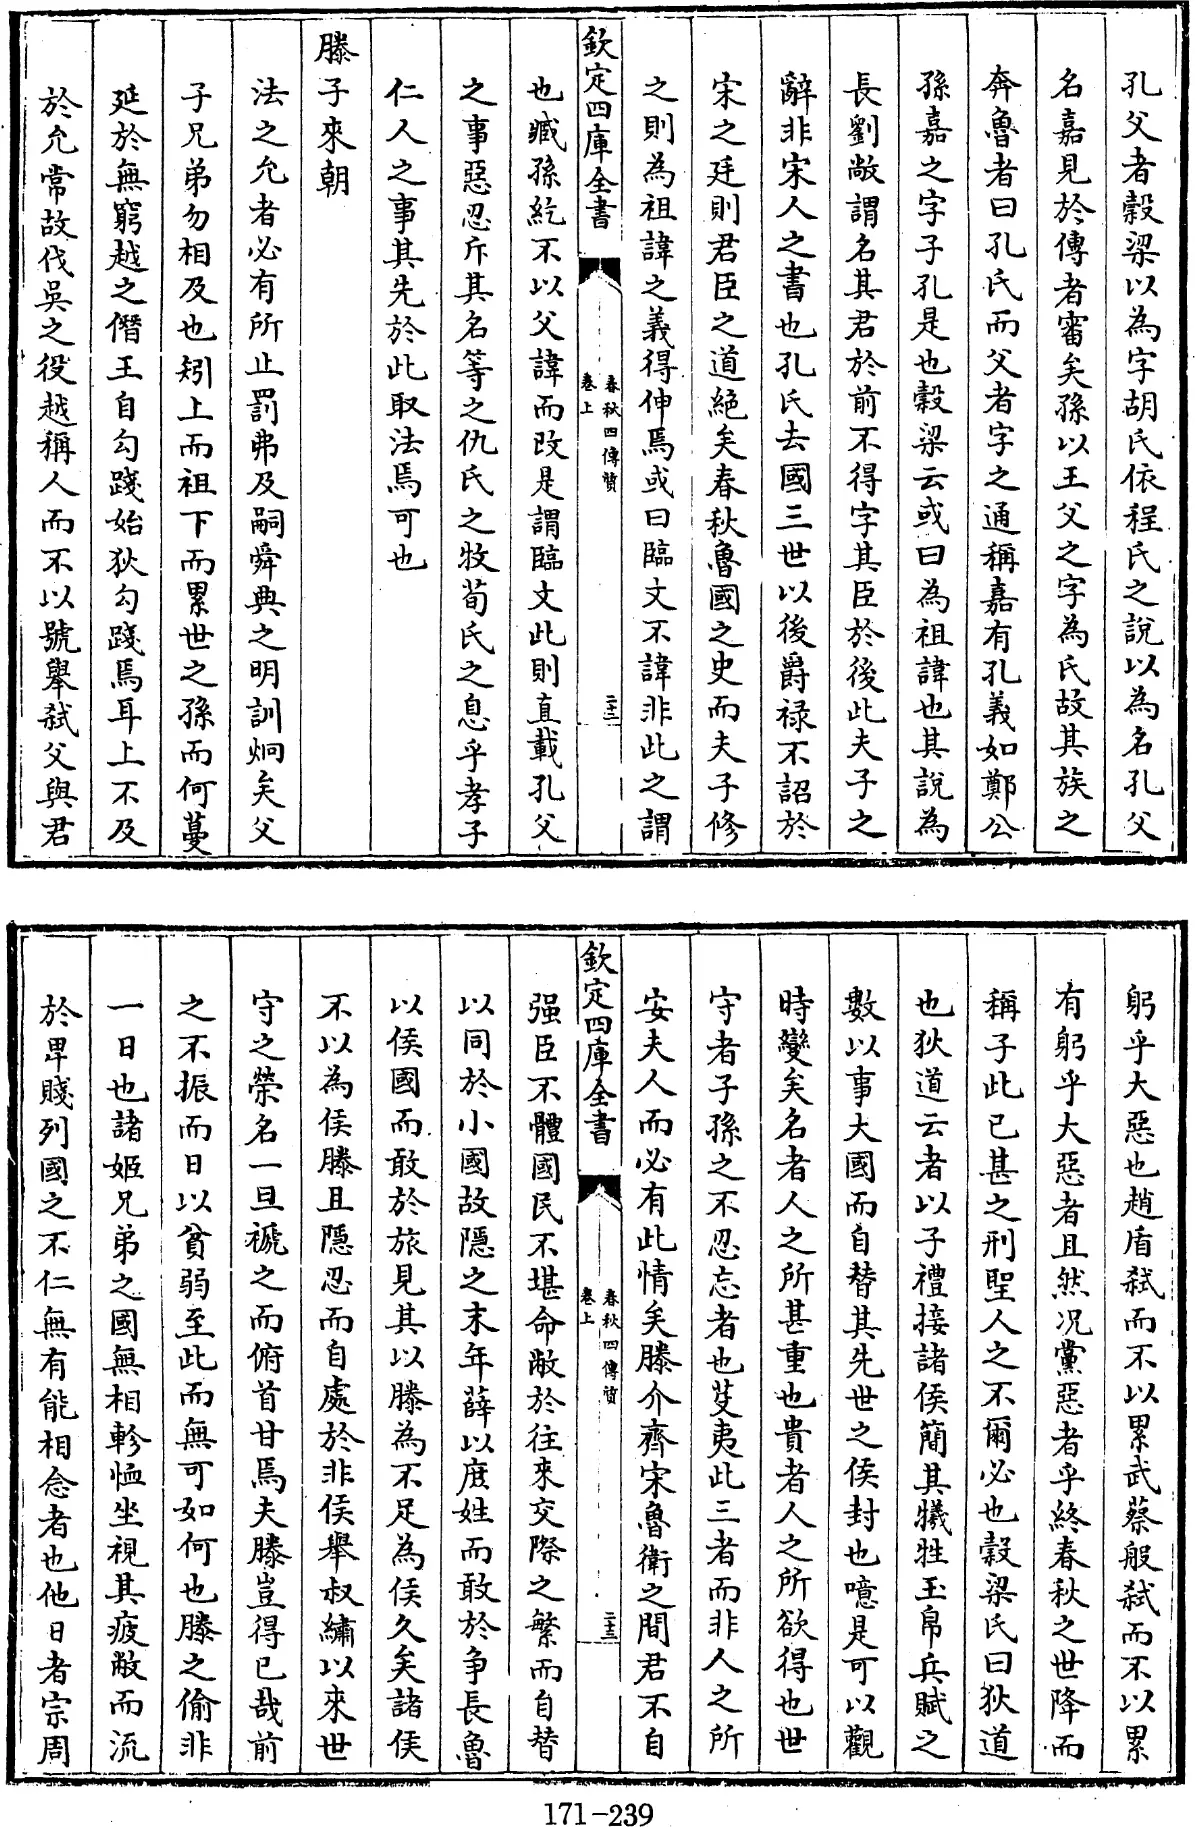 孔父者穀梁以為字胡氏依程氏之說以為名孔父
名嘉見於傳者審矣孫以王父之字為氏故其族之
奔魯者曰孔氏而父者字之通稱嘉有孔義如鄭公
孫嘉之字子孔是也穀梁云或曰為祖諱也其說為
長劉敞謂名其君於前不得字其臣於後此夫子之
辭非宋人之書也孔氏去國三世以後爵祿不詔於
宋之廷則君臣之道絶矣春秋魯國之史而夫子修
之則為祖諱之義得伸焉或曰臨文不諱非此之謂
欽定四庫全書
春秋四傳質
卷上
二十二
也臧孫紇不以父諱而改是謂臨文此則直載孔父
之事惡忍斥其名等之仇氏之牧荀氏之息乎孝子
仁人之事其先於此取法焉可也
滕子來朝
法之允者必有所止罰弗及嗣舜典之明訓炯矣父
子兄弟勿相及也矧上而祖下而累世之孫而何蔓
延於無窮越之僭王自勾踐始狄勾踐焉耳上不及
於允常故伐吳之役越稱人而不以號舉弑父與君
躬乎大惡也趙盾弑而不以累武蔡般弑而不以累
有躬乎大惡者且然況黨惡者乎終春秋之世降而
稱子此已甚之刑聖人之不爾必也穀梁氏曰狄道
也狄道云者以子禮接諸侯簡其犧牲玉帛兵賦之
數以事大國而自替其先世之侯封也噫是可以觀
時變矣名者人之所甚重也貴者人之所欲得也世
守者子孫之不忍忘者也芟夷此三者而非人之所
安夫人而必有此情矣滕介齊宋魯衛之間君不自
欽定四庫全書
春秋四傳質
卷上
二十三
强臣不體國民不堪命敝於往來交際之繁而自替
以同於小國故隱之末年薛以庶姓而敢於争長魯
以侯國而敢於旅見其以滕為不足為侯久矣諸侯
不以為侯滕且隱忍而自處於非侯舉叔繡以來世
守之榮名一旦褫之而俯首甘焉夫滕豈得已哉前
之不振而日以貧弱至此而無可如何也滕之偷非
一日也諸姬兄弟之國無相軫恤坐視其疲敝而流
於卑賤列國之不仁無有能相念者也他日者宗周
171-239